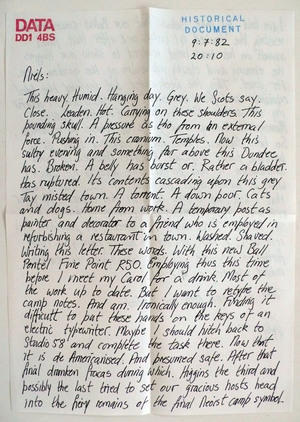 DATA
DD1 4BS
HISTORICAL
DOCUMENT
9:7:82
20:10
Niels:
This heavy. Humid. Hanging day. Grey. We Scots say.
Close. Leaden. Hot. Carrying on these shoulders. This
pounding skull. A pressure as tho from an external
force. Pushing in. This cranium. Temples. Now this
sultry evening and something far above this Dundee
has. Broken. A belly has burst or. Rather a bladder.
Has ruptured. Its contents cascading upon this grey
Tay misted town. A torrent. A down poor. Cats
and dogs. Home from work. A temporary post as
painter and decorator to a friend who is employed in
refurbishing a restaurant in town. Washed. Shaved.
Writing this letter. These words. With this new Ball
Pentel Fine Point R50. Employing thus this time
before I meet my Carol for a drink. Most of
the work up to date. But I want to retype the
camp notes. And am. Ironically enough. Finding it
difficult to put these hands on the keys of an
electric typewriter. Maybe I should hitch back to
Studio 58 and complete the task there. Now that
it is de Americanised. And presumed safe. After that
final drunken fracas during which. Higgins the third and
possibly the last tried to set our gracious hosts head
into the fiery remains of the final Neoist camp symbol.